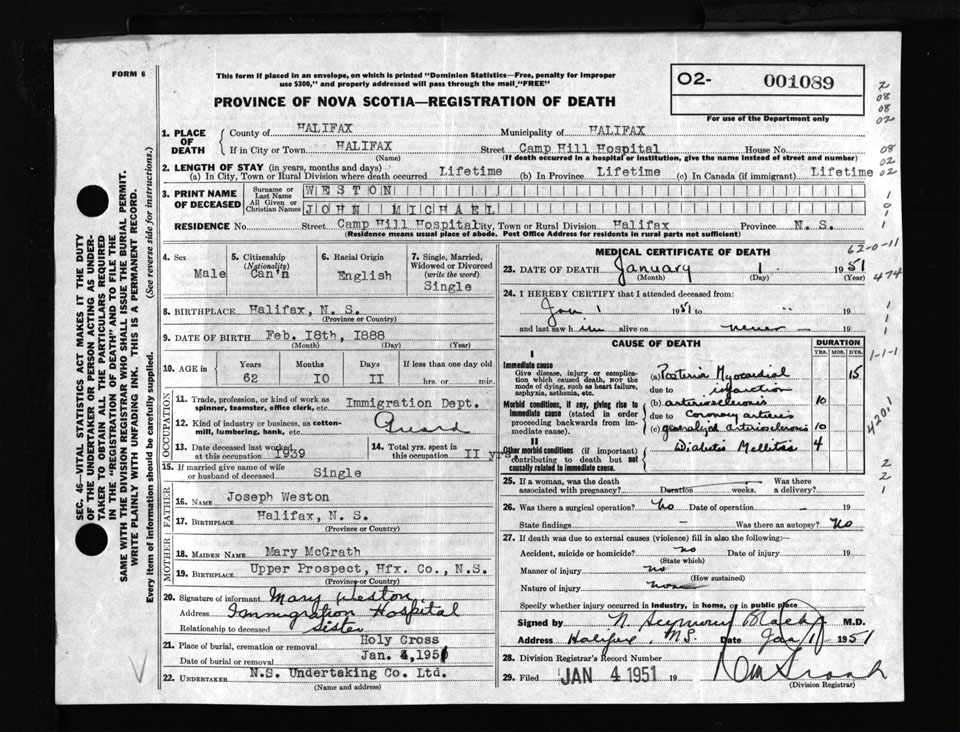 FORM 6
This form if placed in an envelope, on which is printed "Dominion Statistics—Free, penalty for improper
use $300," and properly addressed will pass through the mail "FREE"
O2- 001089
For use of the Department only
PROVINCE OF NOVA SCOTIA—REGISTRATION OF DEATH
1. PLACE OF DEATH
County of HALIFAX Municipality of HALIFAX
If in City or Town HALIFAX Street Camp Hill Hospital House No.
(Name) (If death occurred in a hospital or institution, give the name instead of street and number)
2. LENGTH OF STAY (in years, months and days)
(a) In City, Town or Rural Division where death occurred Lifetime (b) In Province Lifetime (c) In Canada (if immigrant) Lifetime
3. PRINT NAME OF DECEASED
Surname or Last Name WESTON
All Given or Christian Names JOHN MICHAEL
RESIDENCE No. Street Camp Hill Hospital City, Town or Rural Division Halifax Province N. S.
(Residence means usual place of abode. Post Office Address for residents in rural parts not sufficient)
4. Sex Male
5. Citizenship (Nationality) Can'n
6. Racial Origin English
7. Single, Married, Widowed or Divorced (write the word) Single
8. BIRTHPLACE Halifax, N. S.
(Province or Country)
9. DATE OF BIRTH Feb. I8th, I888
(Month) (Day) (Year)
10. AGE in Years Months Days If less than one day old
62 IO II hrs. or min.
OCCUPATION
11. Trade, profession, or kind of work as spinner, teamster, office clerk, etc. Immigration Dept.
12. Kind of industry or business, as cotton-mill, lumbering, bank, etc. Guard
13. Date deceased last worked at this occupation I939
14. Total yrs. spent in this occupation II yrs.
15. If married give name of wife or husband of deceased Single
FATHER
16. NAME Joseph Weston
17. BIRTHPLACE Halifax, N. S.
(Province or Country)
MOTHER
18. MAIDEN NAME Mary McGrath
19. BIRTHPLACE Upper Prospect, Hfx. Co., N.S.
(Province or Country)
20. Signature of informant Mary Weston
Address Immigration Hospital
Relationship to deceased Sister
21. Place of burial, cremation or removal Holy Cross
Date of burial or removal Jan. 4, 1951
22. UNDERTAKER N.S. Undertaking Co. Ltd.
(Name and address)
MEDICAL CERTIFICATE OF DEATH
23. DATE OF DEATH January 1 1951
(Month) (Day) (Year)
24. I HEREBY CERTIFY that I attended deceased from:
Jan 1 1951 to " 19
and last saw him alive on never 19
CAUSE OF DEATH
DURATION
YRS. MOS. DYS.
I
Immediate cause
Give disease, injury or complication which caused death, NOT the mode of dying, such as heart failure, asphyxia, asthenia, etc.
(a) Posterior Myocardial 15
due to infarction
Morbid conditions, if any, giving rise to immediate cause (stated in order proceeding backwards from immediate cause).
(b) arteriosclerosis 10
due to Coronary arteries
(c) generalized arteriosclerosis 10
II
Other morbid conditions (if important) contributing to death but not causally related to immediate cause.
Diabetes Mellitus 4
25. If a woman, was the death associated with pregnancy? Duration weeks. Was there a delivery?
26. Was there a surgical operation? No Date of operation - 19
State findings - Was there an autopsy? No
27. If death was due to external causes (violence) fill in also the following:—
Accident, suicide or homicide? no Date of injury 19
(State which)
Manner of injury no
(How sustained)
Nature of injury none
Specify whether injury occurred in industry, in home, or in public place
Signed by N Seymour M.D.
Address Halifax, N.S. Date Jan 1 1951
28. Division Registrar's Record Number
29. Filed JAN 4 1951 19
(Division Registrar)
SEC. 46—VITAL STATISTICS ACT MAKES IT THE DUTY
OF THE UNDERTAKER OR PERSON ACTING AS UNDER-
TAKER TO OBTAIN ALL THE PARTICULARS REQUIRED
IN THE "REGISTRATION OF DEATH" AND TO FILE THE
SAME WITH THE DIVISION REGISTRAR WHO SHALL ISSUE THE BURIAL PERMIT.
WRITE PLAINLY WITH UNFADING INK. THIS IS A PERMANENT RECORD.
Every item of information should be carefully supplied. (See reverse side for instructions.)
2
08
08
02
08
02
02
1
1
0
1
1
62-0-11
474
1
1
1
1-1-1
4201
2
2
1